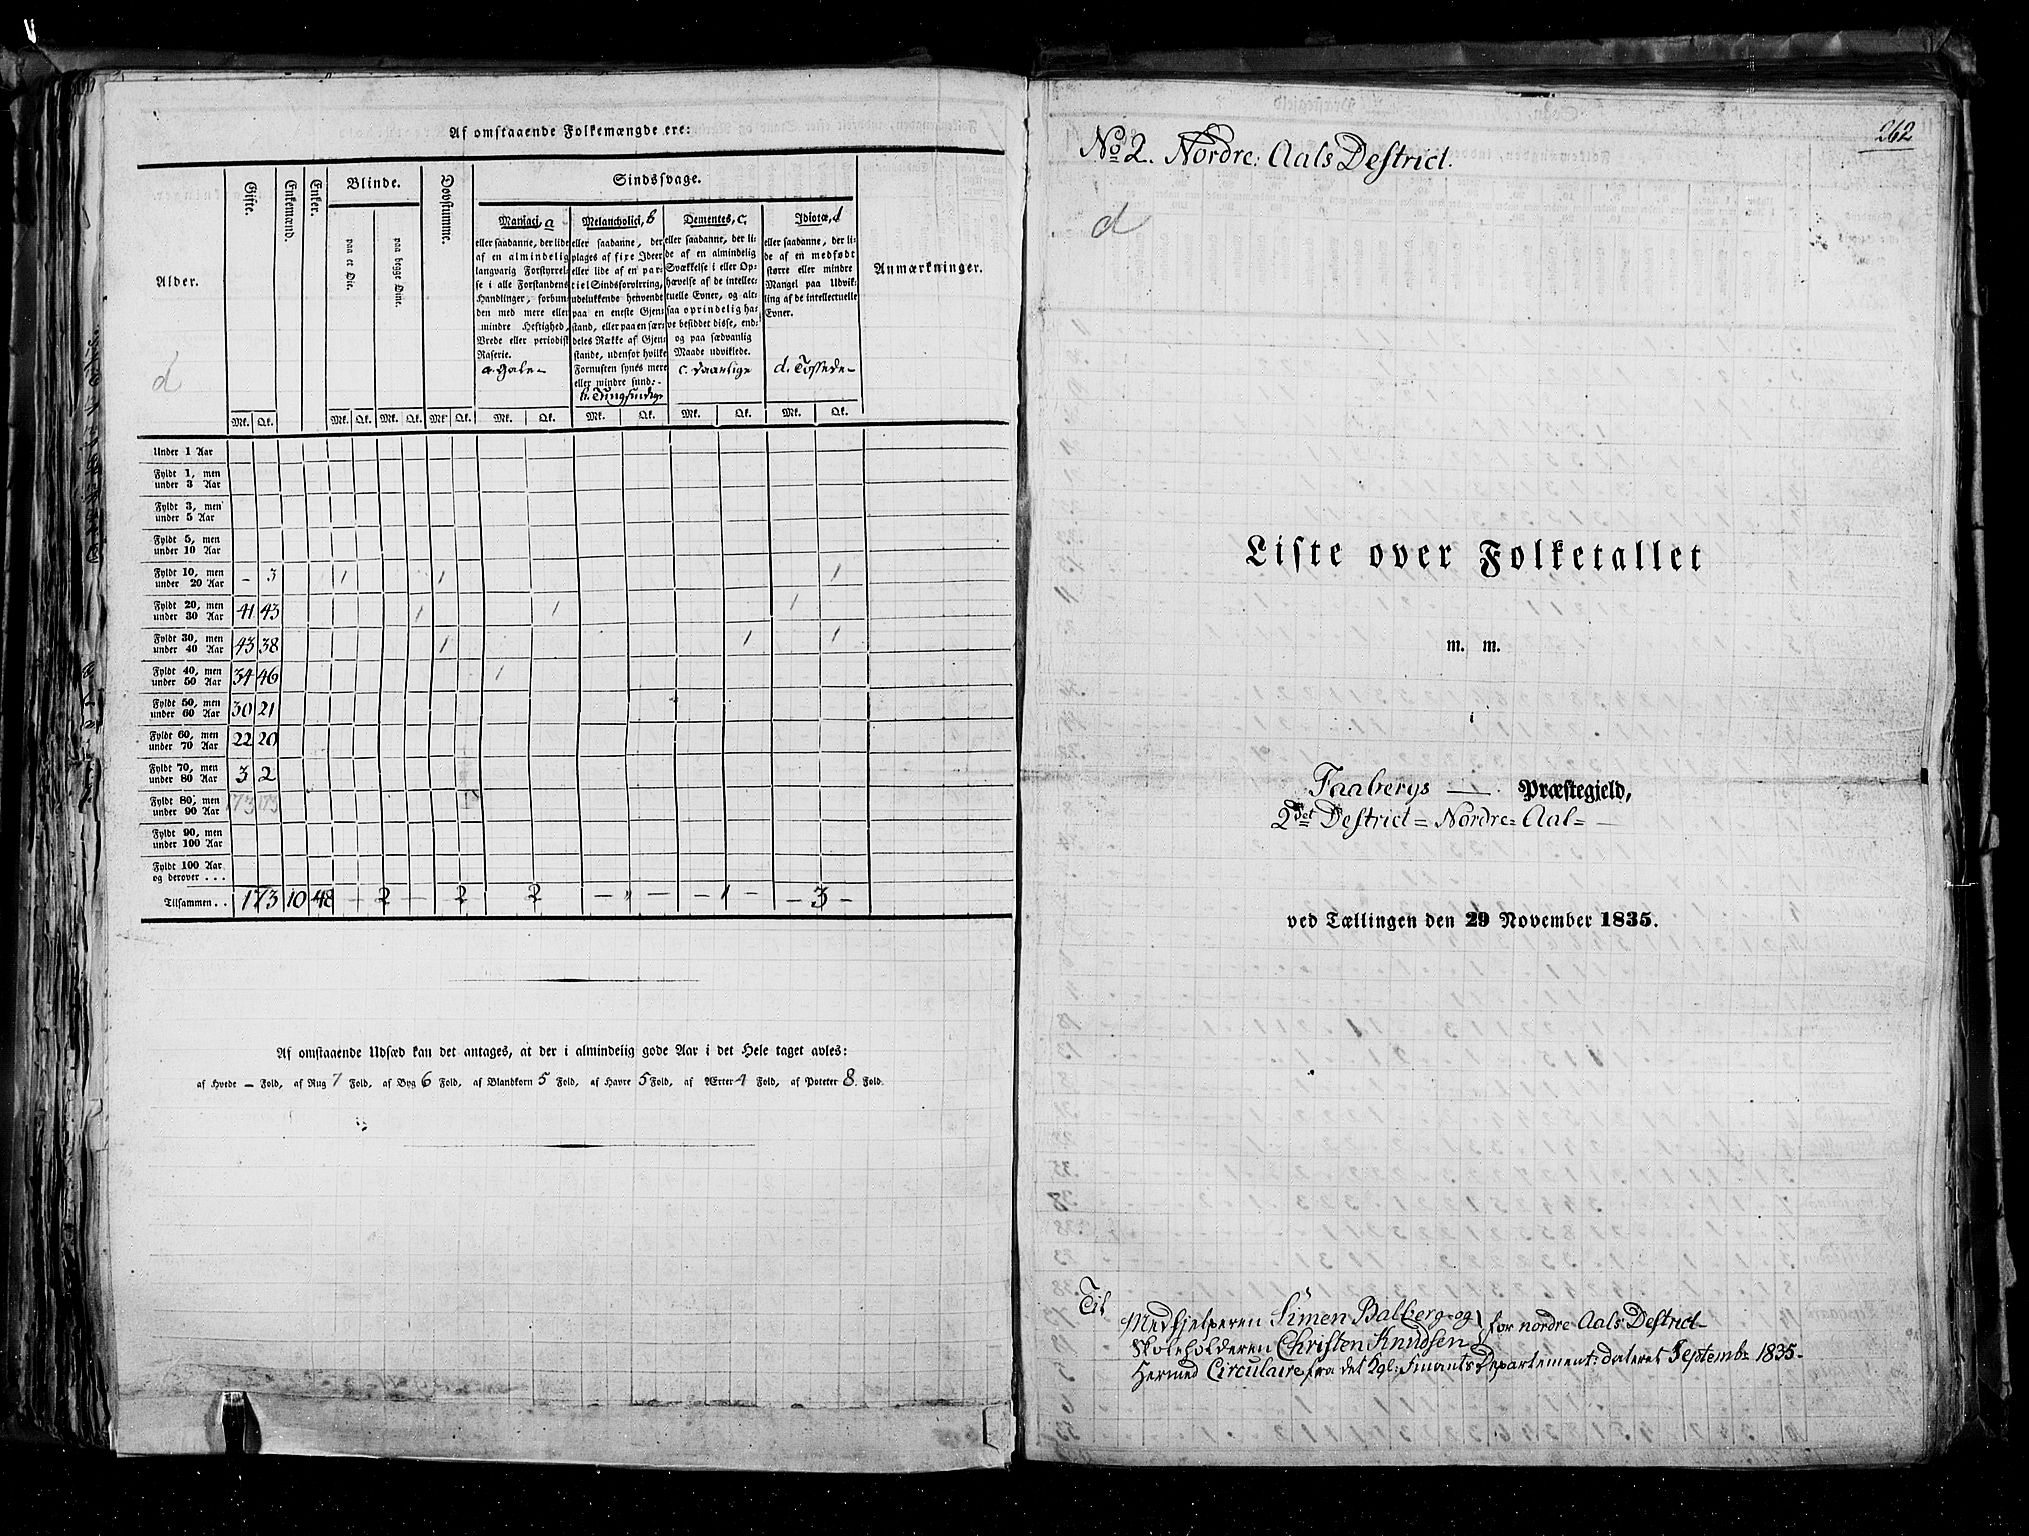 Af omstaaende Folkemængde ere:
Alder.
Gifte.
Enkemænd.
Enker.
Blinde.
paa et Øie.
paa begge Øine.
Døvstumme.
Sindssvage.
Maniaci, a
eller saadanne, der lide
af en almindelig
langvarig Forstyrrel-
se i alle Forstandens
Handlinger, forbun-
den med mere eller
mindre Heftighed,
Vrede eller periodisk
Raserie.
a. Gale-
Melancholici, b
eller saadanne, der
plages af fixe Ideer
eller lide af en par-
tiel Sindsforvirring,
udelukkende henvendt
paa en eneste Gjen-
stand, eller paa en sær-
deles Række af Gjen-
stande, udenfor hvilke
Fornuften synes mere
eller mindre sund: -
b. Tungsindige
Dementes, c.
eller saadanne, der li-
de af en almindelig
Svækkelse i eller Op-
hævelse af de intellec-
tuelle Evner, og alt-
saa oprindelig ha-
ve besiddet disse, end-
og paa sædvanlig
Maade udviklede.
c. Daarlige
Idiotæ, d
eller saadanne, der li-
de af en medfødt
større eller mindre
Mangel paa Udvik-
ling af de intellectuelle
Evner.
d. Tossede-
Anmærkninger.
d
Mk. Qk. Mk. Qk. Mk. Qk. Mk. Qk. Mk. Qk. Mk. Qk. Mk. Qk. Mk. Qk.
Under 1 Aar
Fyldt 1, men
under 3 Aar
Fyldt 3, men
under 5 Aar
Fyldt 5, men
under 10 Aar
Fyldt 10, men
under 20 Aar - 3 1 1 1
Fyldt 20, men
under 30 Aar 41 43 1 1 1
Fyldt 30, men
under 40 Aar 43 38 1 1 1
Fyldt 40, men
under 50 Aar 34 46 1
Fyldt 50, men
under 60 Aar 30 21
Fyldt 60, men
under 70 Aar 22 20
Fyldt 70, men
under 80 Aar 3 2
Fyldt 80, men
under 90 Aar 173 173
Fyldt 90, men
under 100 Aar
Fyldt 100 Aar
og derover . . .
Tilsammen . . 173 10 48 - 2 - 2 2 - " - - 1 - - 3 -
Af omstaaende Udsæd kan det antages, at der i almindelig gode Aar i det Hele taget avles:
af Hvede - Fold, af Rug 7 Fold, af Byg 6 Fold, af Blandkorn 5 Fold, af Havre 5 Fold, af Ærter 4 Fold, af Poteter 8. Fold.
262
No 2. Nordre: Aals Destrict.
d
Liste over Folketallet
m. m.
i
Faabergs — Præstegjeld,
2det Destrict = Nordre = Aal = —
ved Tællingen den 29 November 1835.
Til
Medhjelperen Simen Balberg og } for nordre Aals Destrict -
Skoleholderen Christen Knudsen
Hermed Circulaire fra det Kgl: Finants Departement: dateret Septembr 1835.